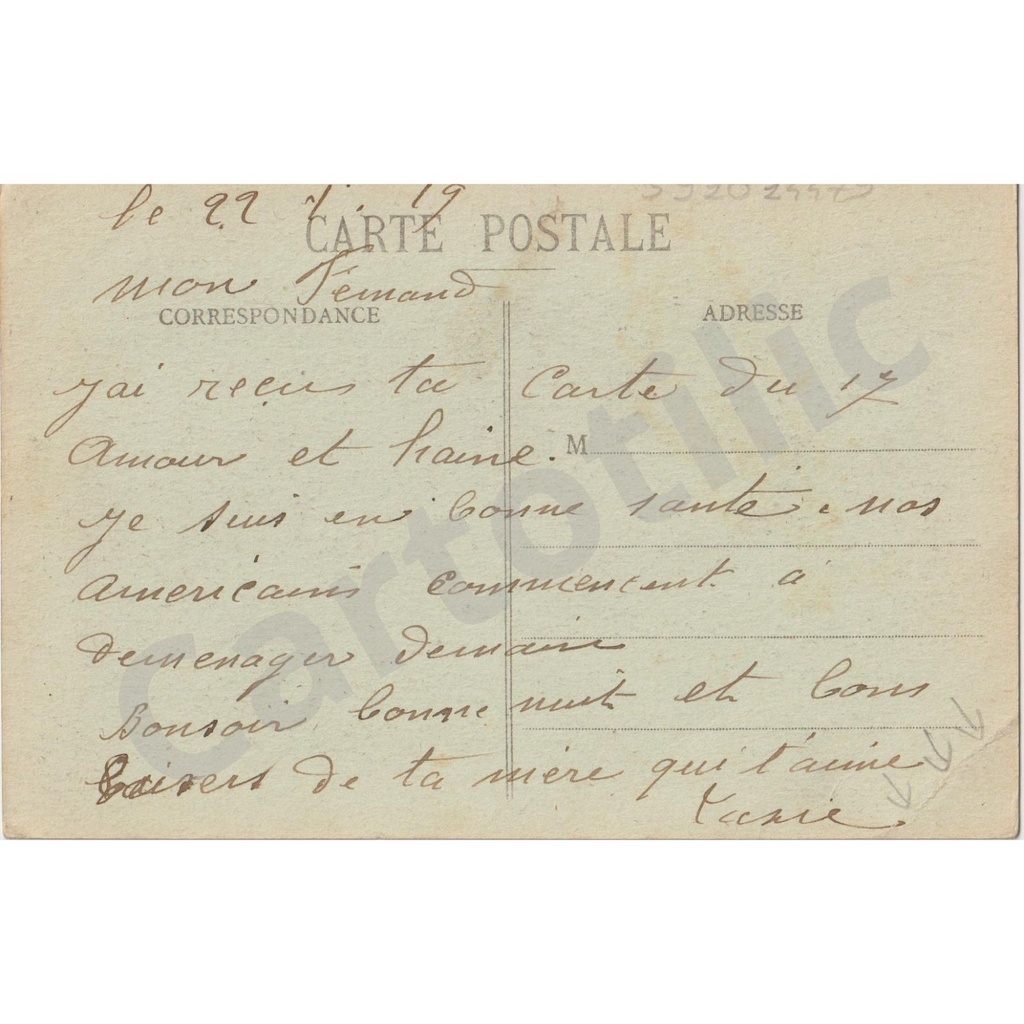 le 22 1. 19
CARTE POSTALE
mon Fernand
CORRESPONDANCE
ADRESSE
j'ai recus ta Carte du 17
Amour et haine.
M
je suis en bonne santé. nos
americains commencent a
demenager demain
Bonsoir bonne nuit et bons
baisers de ta mère qui t'aime
Cartollic